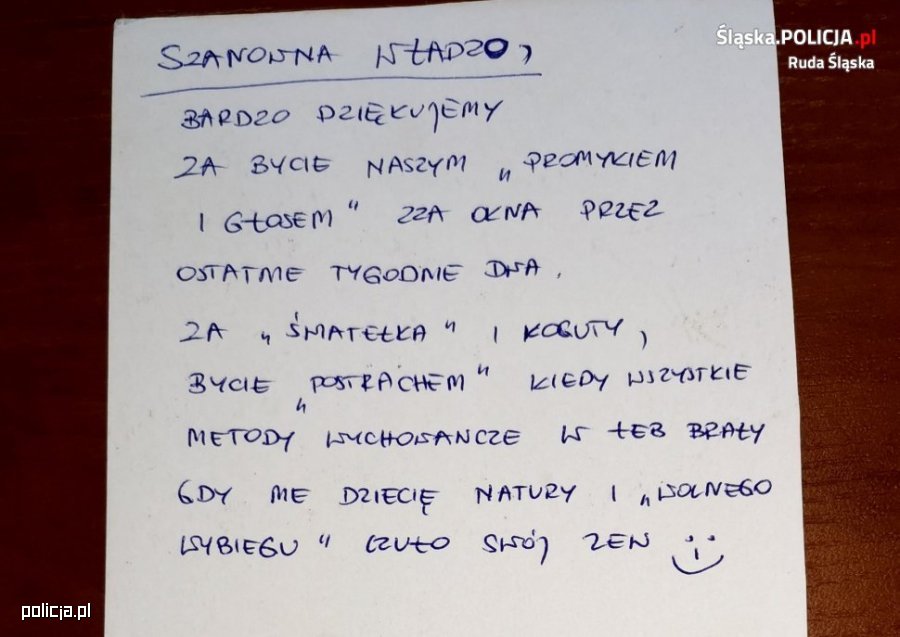 Śląska.POLICJA.pl
Ruda Śląska
SZANOWNA WŁADZO,
BARDZO DZIĘKUJEMY
ZA BYCIE NASZYM „PROMYKIEM
I GŁOSEM" ZZA OKNA PRZEZ
OSTATNIE TYGODNIE DNIA.
ZA „ŚWIATEŁKA" I KOGUTY,
BYCIE „POSTRACHEM" KIEDY WSZYSTKIE
METODY WYCHOWAWCZE W ŁEB BRAŁY
GDY ME DZIECIĘ NATURY I „WOLNEGO
WYBIEGU" CZUŁO SWÓJ ZEW
policja.pl